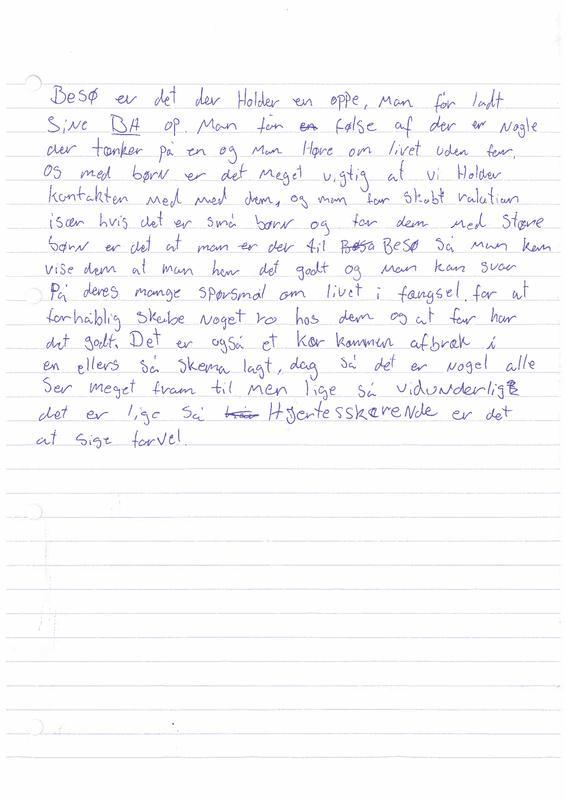 Besø er det der Holder en oppe, Man får ladt
Sine BA op. Man får en følse af der er Nogle
der tænker på en og Man Høre om livet uden for.
og med børn er det meget vigtig at vi Holder
kontakten med med dem, og man får skabt ralation
især hvis det er små børn og for dem med Støre
børn er det at man er der til Besø Besø Så Man kan
vise dem at man har det godt og Man kan svar
På deres mange spørsmål om livet i fængsel for at
forhåblig skabe Noget ro hos dem og at far har
det godt. Det er også et kær kommen afbræk i
en ellers så skema lagt, dag så det er Nogel alle
Ser meget fram til Men lige så vidunderligt
det er lige så Hjertesskærende er det
at sige farvel.